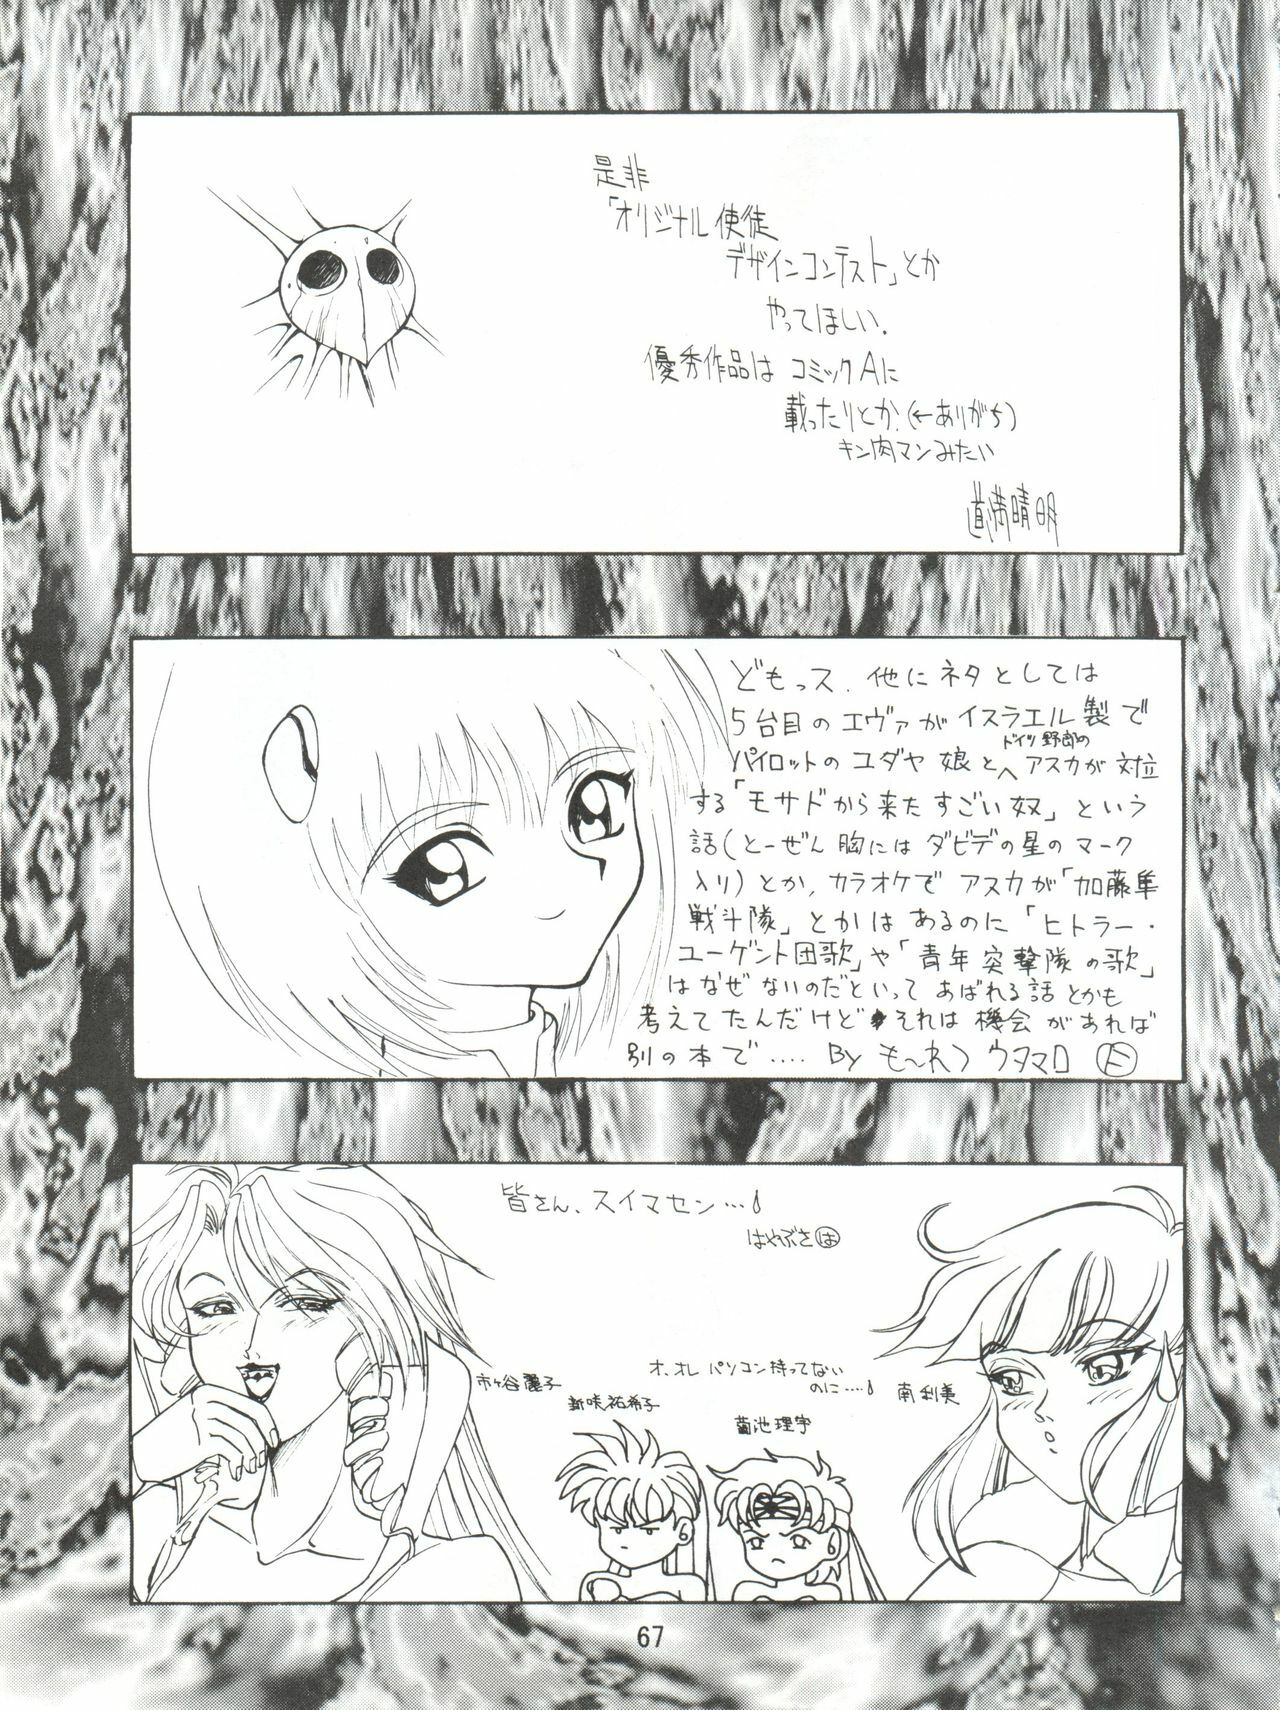 是非
「オリジナル使徒
デザインコンテスト」とか
やってほしい.
優秀作品は コミックAに
載ったりとか.(←ありがち)
キン肉マンみたい
道満晴明
どもっス. 他にネタとしては
5台目のエヴァがイスラエル製で
ドイツ野郎の
パイロットのユダヤ娘とヘアスカが対立
する「モサドから来たすごい奴」という
話(とーぜん胸にはダビデの星のマーク
入り)とか,カラオケでアスカが「加藤隼
戦斗隊」とかはあるのに「ヒトラー・
ユーゲント団歌」や「青年突撃隊の歌」
はなぜないのだといってあばれる話とかも
考えてたんだけど それは機会があれば
別の本で.... By も〜れつウタマロ
皆さん、スイマセン…
はやぶさ は
オ、オレ パソコン持ってない
のに….
市ヶ谷麗子
新咲祐希子
菊池理宇
南利美
67